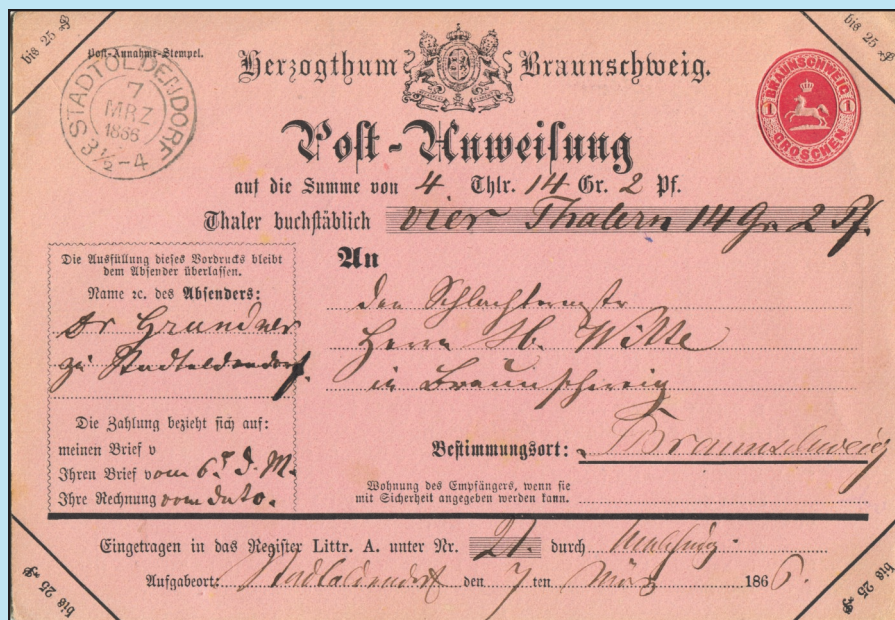 bis 25 ₰
bis 25 ₰
Post-Annahme-Stempel.
STADTOLDENDORF
7
MRZ
1866
3½-4
Herzogthum Braunschweig.
BRAUNSCHWEIG
1 1
GROSCHEN
Post-Anweisung
auf die Summe von 4 Thlr. 14 Gr. 2 Pf.
Thaler buchstäblich vier Thalern 14 Gr 2 Pf.
Die Ausfüllung dieses Vordrucks bleibt
dem Absender überlassen.
Name ꝛc. des Absenders:
Dr Grundner
zu Stadtoldendorf.
An
den Schlachtermstr
Herrn H. Witte
in Braunschweig
Die Zahlung bezieht sich auf:
meinen Brief v
Ihren Brief vom 6. d. M.
Ihre Rechnung vom dato.
Bestimmungsort: Braunschweig
Wohnung des Empfängers, wenn sie
mit Sicherheit angegeben werden kann.
Eingetragen in das Register Littr. A. unter Nr. 21. durch
Aufgabeort: Stadtoldendorf den 7 ten März 1866.
bis 25 ₰
bis 25 ₰